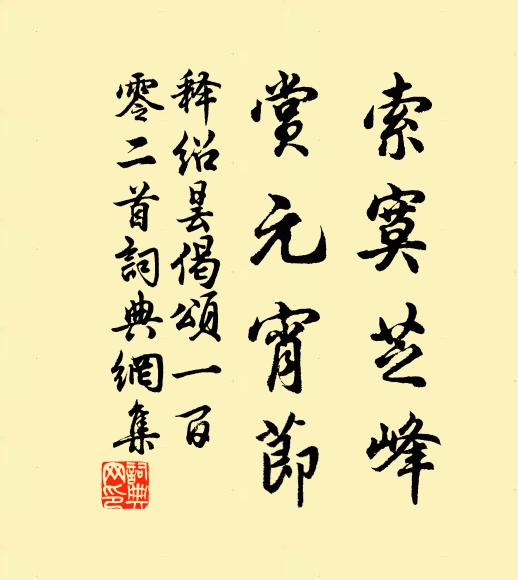 索寞芝峰
賞元宵節
释绍昙偈頌一百
零二首詞典網集
詞典网印